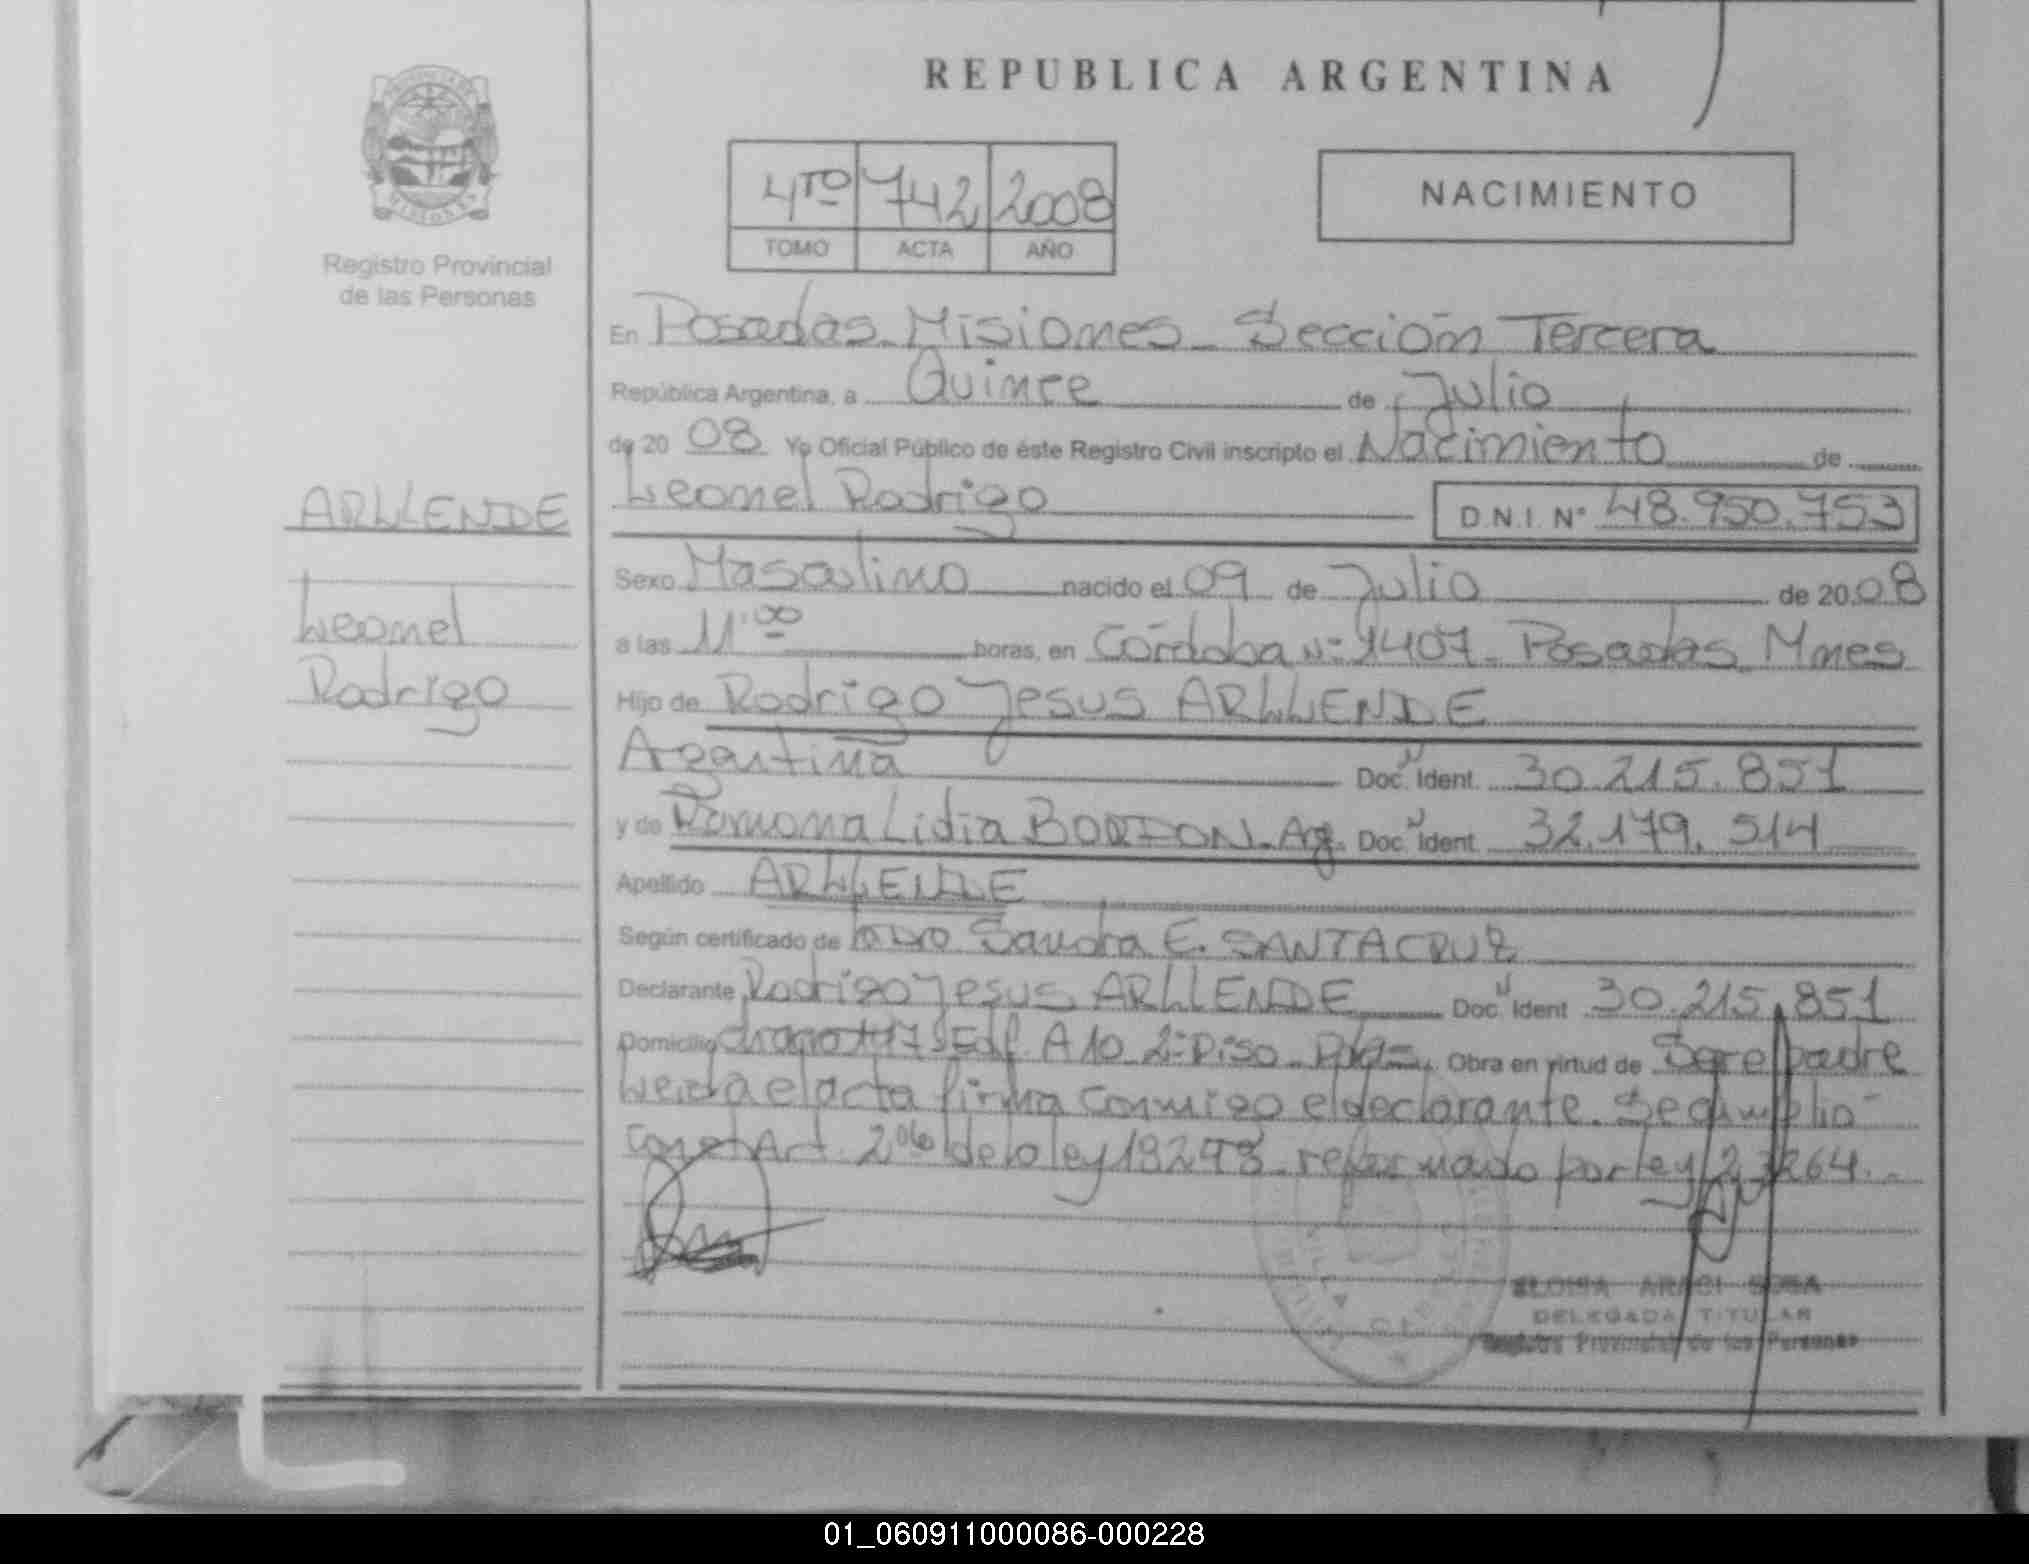 REPUBLICA ARGENTINA
PROVINCIA DE
MISIONES
Registro Provincial
de las Personas
4TO 742 2008
TOMO ACTA AÑO
NACIMIENTO
En Posadas Misiones - Sección Tercera
República Argentina, a Quince de Julio
de 20 08 Yo Oficial Público de éste Registro Civil inscripto el Nacimiento de
Leonel Rodrigo D.N.I. Nº 48.950.753
ARLLENDE
Leonel
Rodrigo
Sexo Masculino nacido el 09 de Julio de 2008
a las 11:00 horas, en Córdoba Nº 1407 - Posadas Mnes
Hijo de Rodrigo Jesus ARLLENDE
Argentina Doc. Ident. 30.215.851
y de Ramona Lidia BORDON - Arg. Doc. Ident. 32.179.514
Apellido ARLLENDE
Según certificado de Sandra E. SANTACRUZ
Declarante Rodrigo Jesus ARLLENDE Doc. Ident 30.215.851
Domicilio Edf. A 10 2º Piso - Pdas. Obra en virtud de Ser el padre
Leida el acta firma conmigo el declarante. Se cumplió
con el Art. 2do de la ley 18248 reformado por ley 23264.
ELOISA ARACI SOSA
DELEGADA TITULAR
Registro Provincial de las Personas
01_060911000086-000228